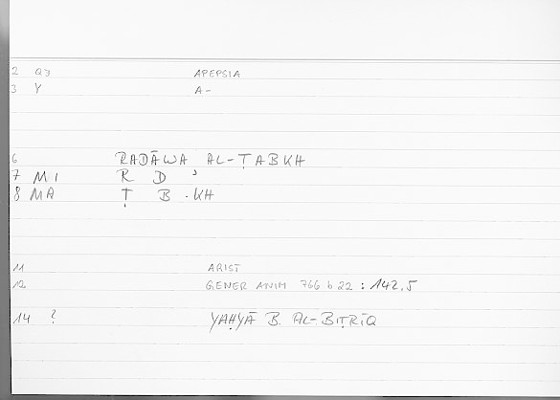 2 Q3 APEPSIA
3 Y A-
6 RADĀWA AL-ṬABKH
7 MI R D ʾ
8 MA Ṭ B KH
11 ARIST
12 GENER ANIM 766 b 22 : 142,5
14 ? YAḤYĀ B. AL-BIṬRĪQ